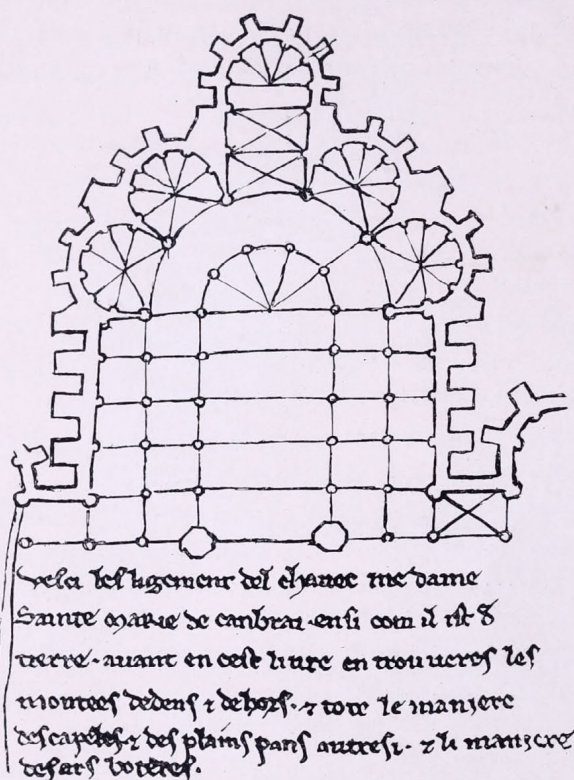 Vesci lesligement del chavec me dame
Sainte Marie de canbrai · ensi com il ist d
tierre · avant en cest livre en trouveres les
montees dedens ⁊ dehors · ⁊ tote le maniere
des capeles · ⁊ des plains pans autresi · ⁊ li maniere
des ars boteres ·